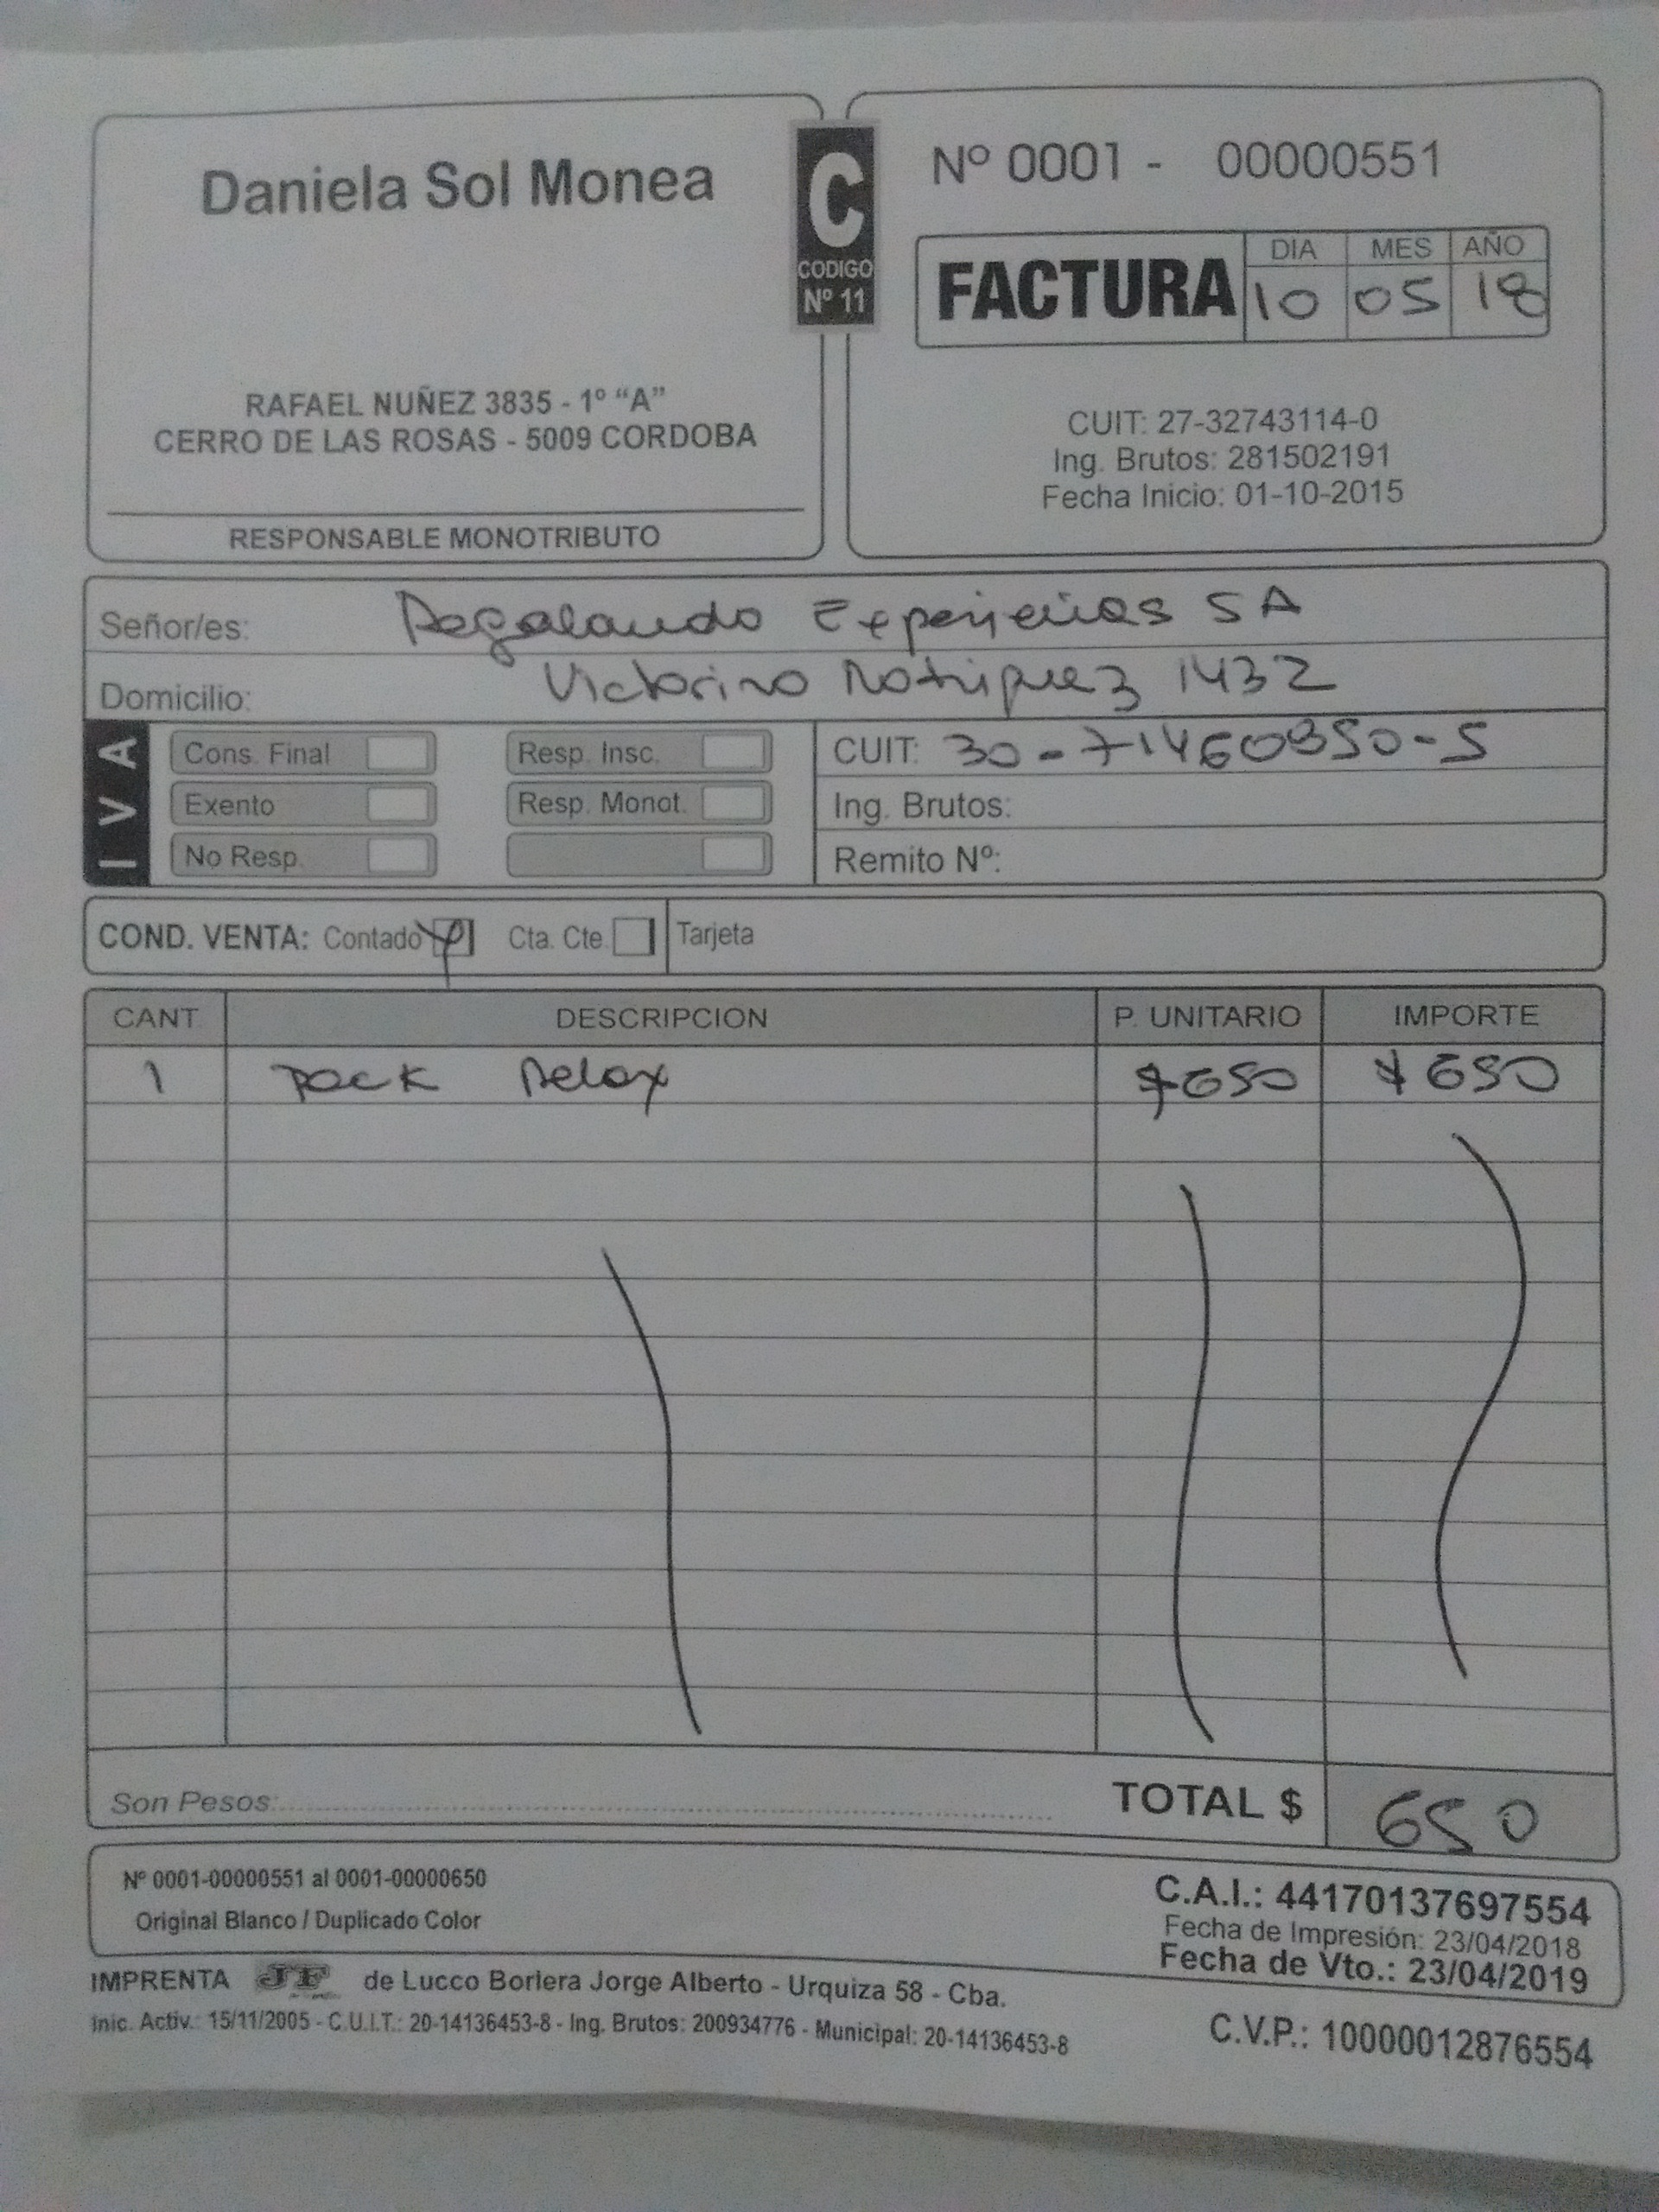 Daniela Sol Monea
RAFAEL NUÑEZ 3835 - 1º “A”
CERRO DE LAS ROSAS - 5009 CORDOBA
RESPONSABLE MONOTRIBUTO
C
CODIGO
Nº 11
Nº 0001 - 00000551
FACTURA
DIA MES AÑO
10 05 18
CUIT: 27-32743114-0
Ing. Brutos: 281502191
Fecha Inicio: 01-10-2015
Señor/es: Regalando Experiencias SA
Domicilio: Victorino Rodriguez 1432
IVA
Cons. Final Resp. Insc.
Exento Resp. Monot.
No Resp.
CUIT: 30-71460950-5
Ing. Brutos:
Remito Nº:
COND. VENTA: Contado Cta. Cte. Tarjeta
CANT. DESCRIPCION P. UNITARIO IMPORTE
1 Pack Relax $650 $650
Son Pesos: TOTAL $ 650
Nº 0001-00000551 al 0001-00000650
Original Blanco / Duplicado Color
C.A.I.: 44170137697554
Fecha de Impresión: 23/04/2018
Fecha de Vto.: 23/04/2019
IMPRENTA JF de Lucco Borlera Jorge Alberto - Urquiza 58 - Cba.
Inic. Activ.: 15/11/2005 - C.U.I.T.: 20-14136453-8 - Ing. Brutos: 200934776 - Municipal: 20-14136453-8
C.V.P.: 10000012876554